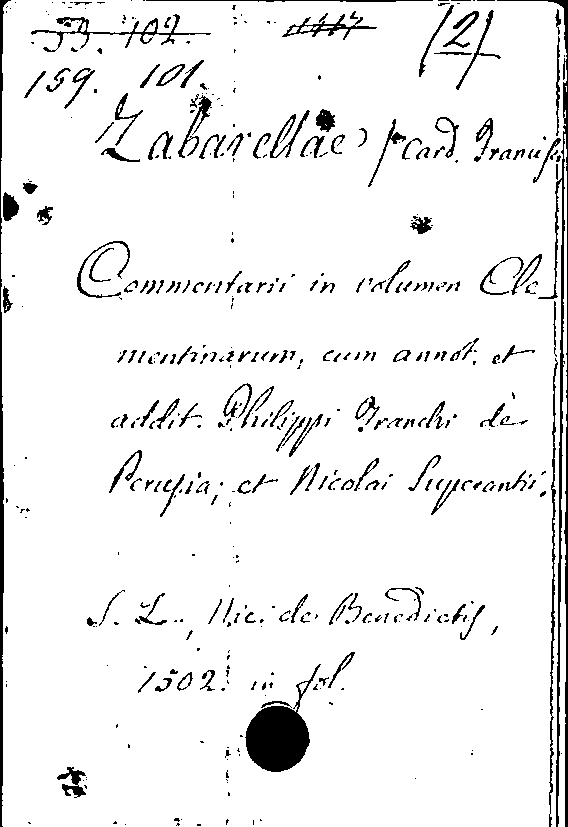 53. 102. 1417 (2)
159. 101.
Zabarellae, Card. Francisci
Commentarii in volumen Cle-
mentinarum, cum annot. et
addit. Philippi Franchi de
Perusia; et Nicolai Superantii.
S. L., Nic. de Benedictis,
1502. in fol.